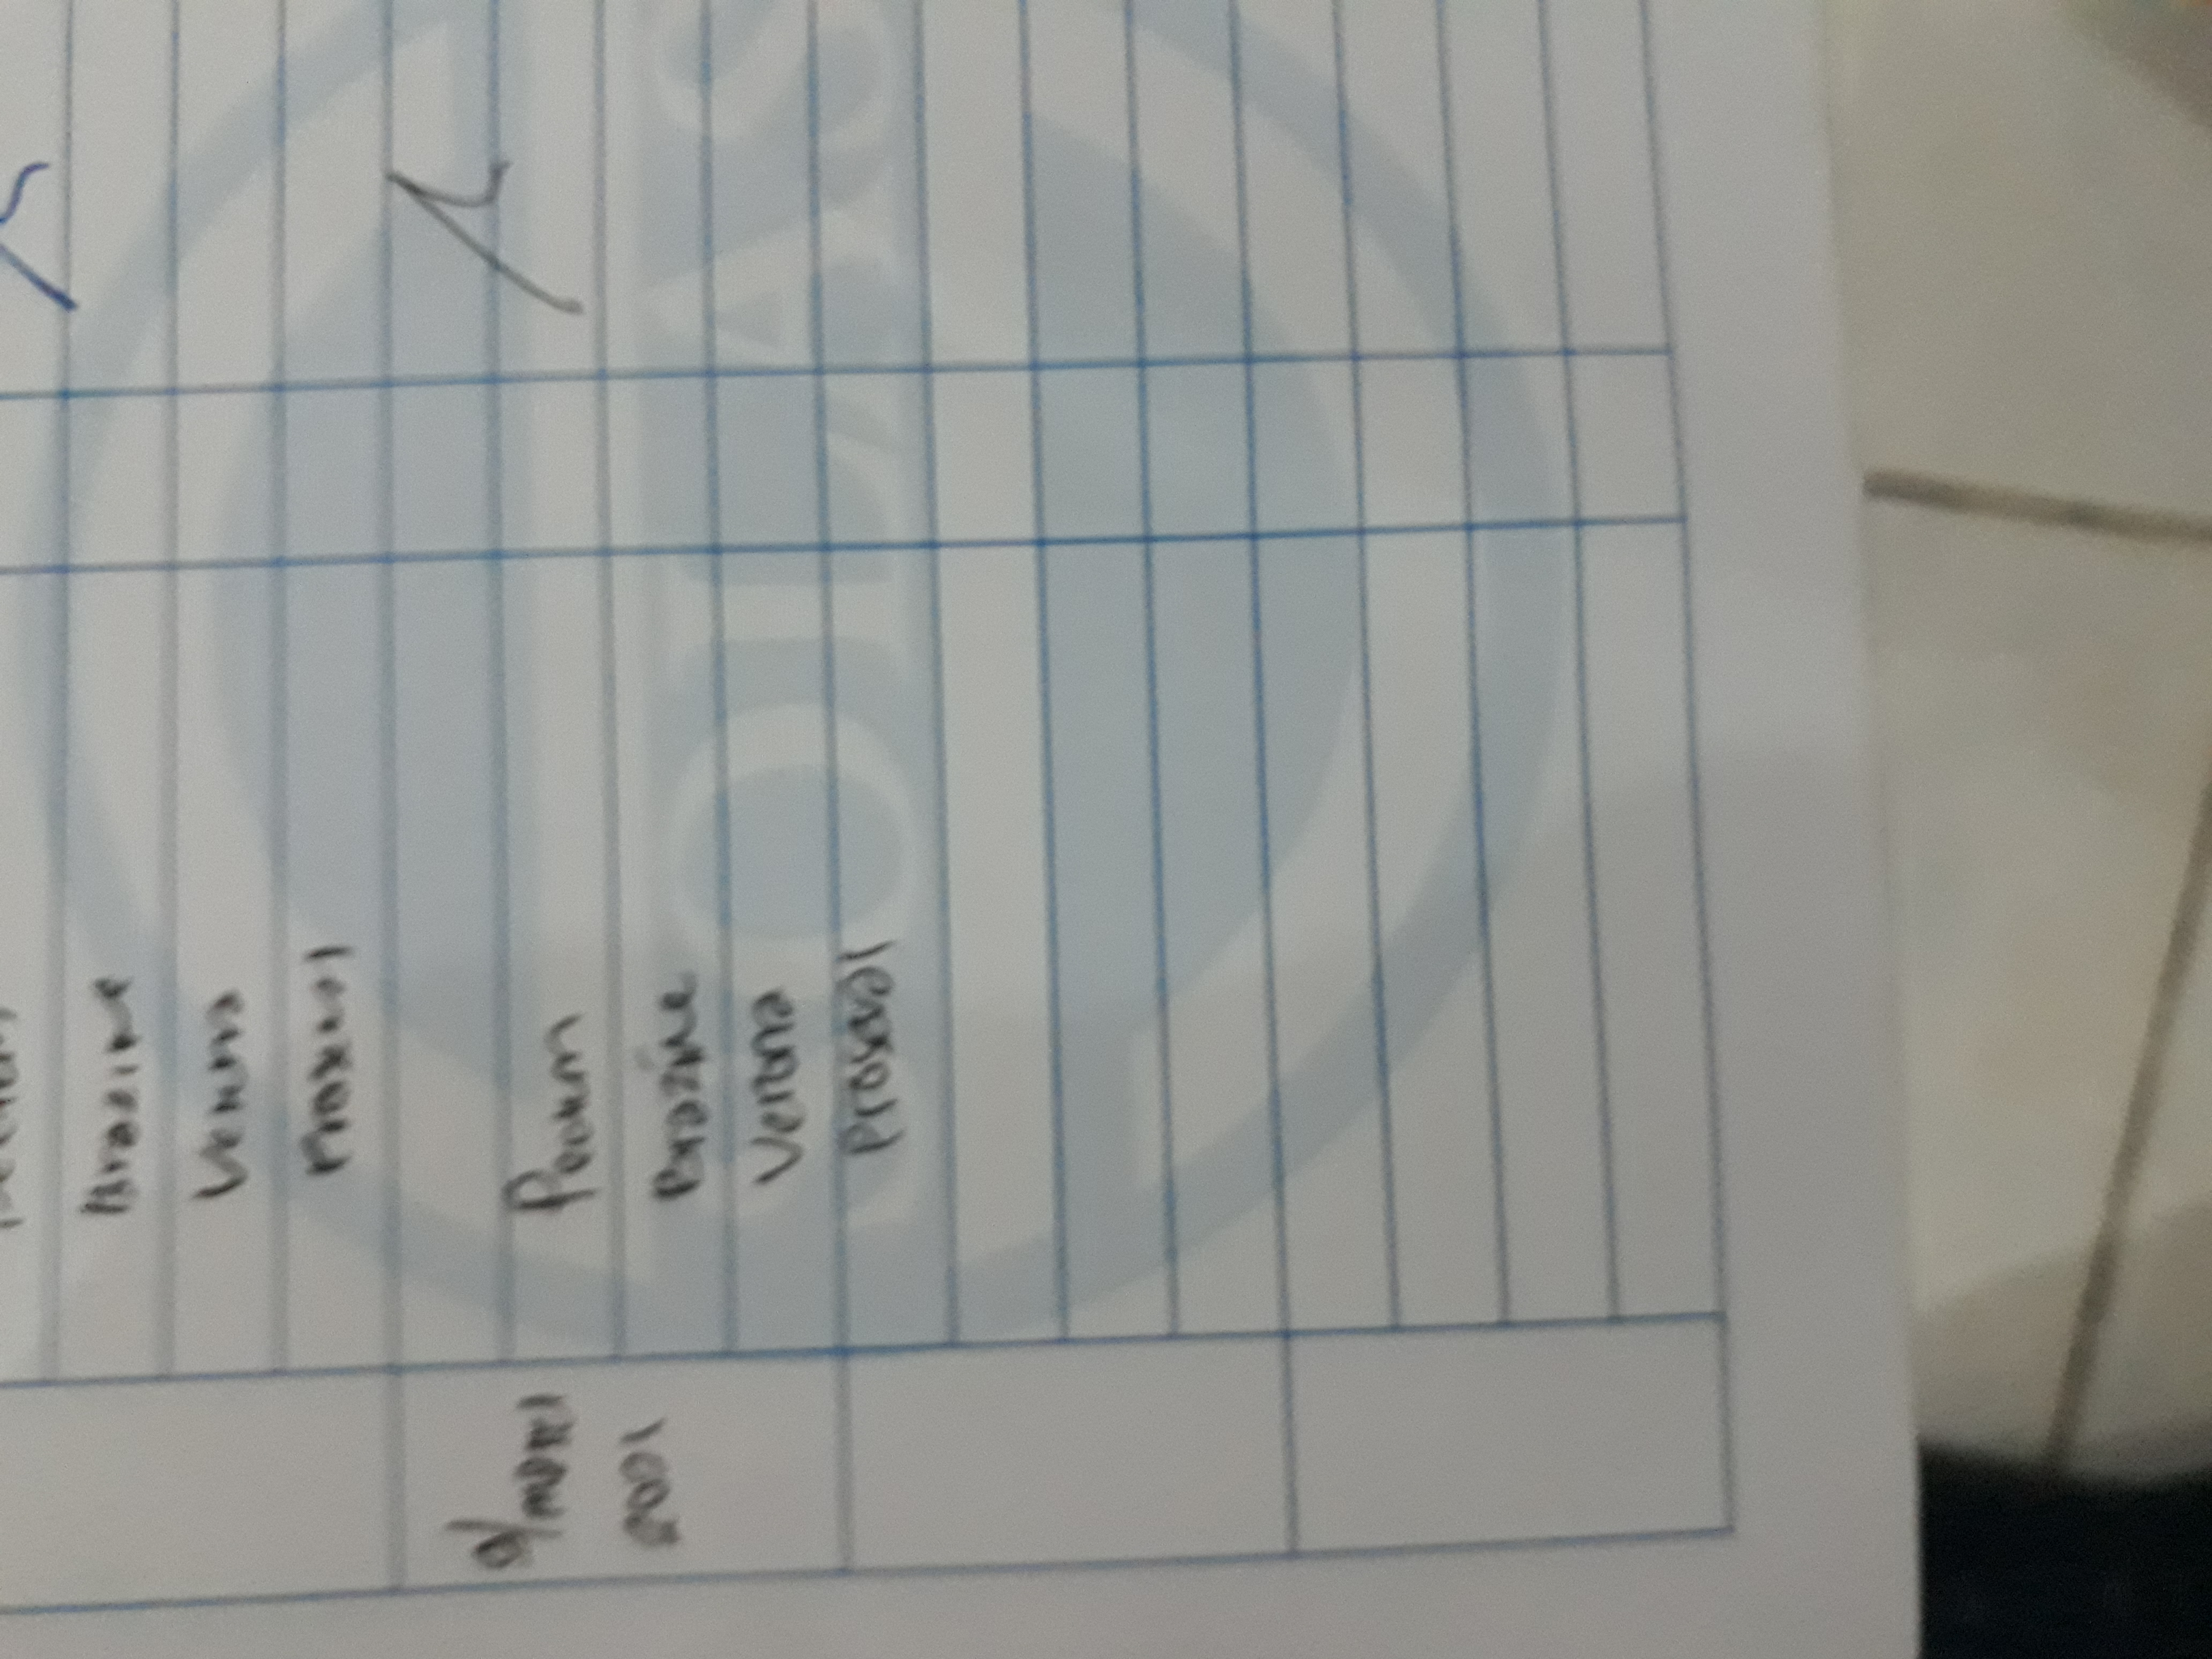 Brazine
Verona
Proseval
9/maret
2021
Pectum
Brazine
Verona
Proseval
SOLAS